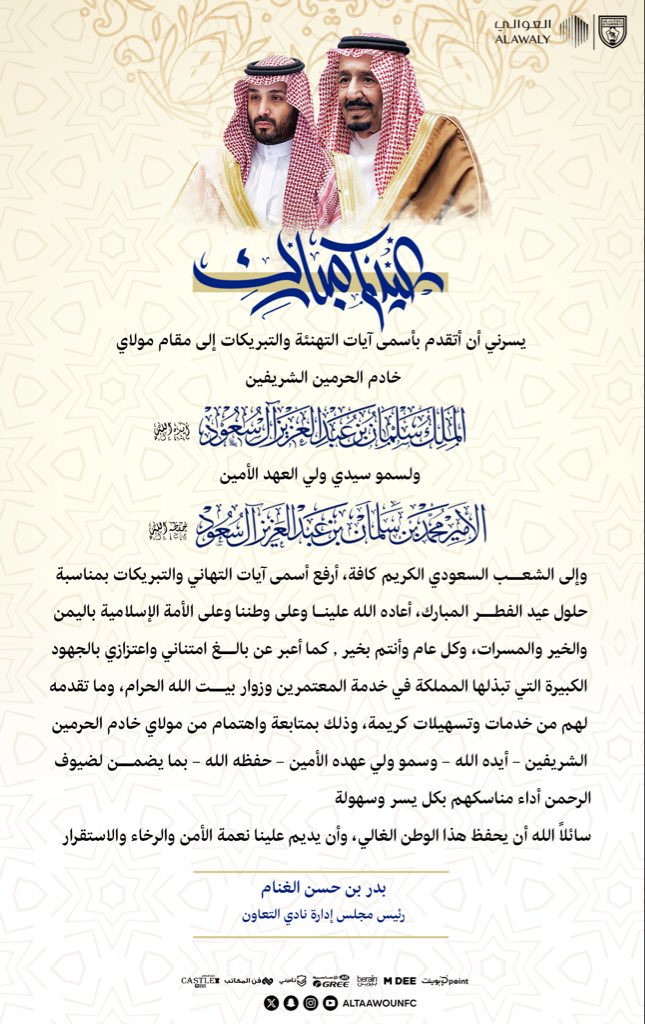 العوالي
ALAWALY
عيدكم مبارك
يسرني أن أتقدم بأسمى آيات التهنئة والتبريكات إلى مقام مولاي
خادم الحرمين الشريفين
الملك سلمان بن عبدالعزيز آل سعود أيده الله
ولسمو سيدي ولي العهد الأمين
الأمير محمد بن سلمان بن عبدالعزيز آل سعود حفظه الله
وإلى الشعــب السعودي الكريم كافة، أرفع أسمى آيات التهاني والتبريكات بمناسبة
حلول عيد الفطــر المبارك، أعاده الله علينــا وعلى وطننا وعلى الأمة الإسلامية باليمن
والخير والمسرات، وكل عام وأنتم بخير , كما أعبر عن بالــغ امتناني واعتزازي بالجهود
الكبيرة التي تبذلها المملكة في خدمة المعتمرين وزوار بيــت الله الحرام، وما تقدمه
لهم من خدمات وتسهيلات كريمة، وذلك بمتابعة واهتمام من مولاي خادم الحرمين
الشريفين – أيده الله – وسمو ولي عهده الأمين – حفظه الله – بما يضمــن لضيوف
الرحمن أداء مناسكهم بكل يسر وسهولة
سائلاً الله أن يحفظ هذا الوطن الغالي، وأن يديم علينا نعمة الأمن والرخاء والاستقرار
بدر بن حسن الغنام
رئيس مجلس إدارة نادي التعاون
بوينت point M DEE berain بيرين GREE تأميني فن المكاتب CASTLE
ALTAAWOUNFC